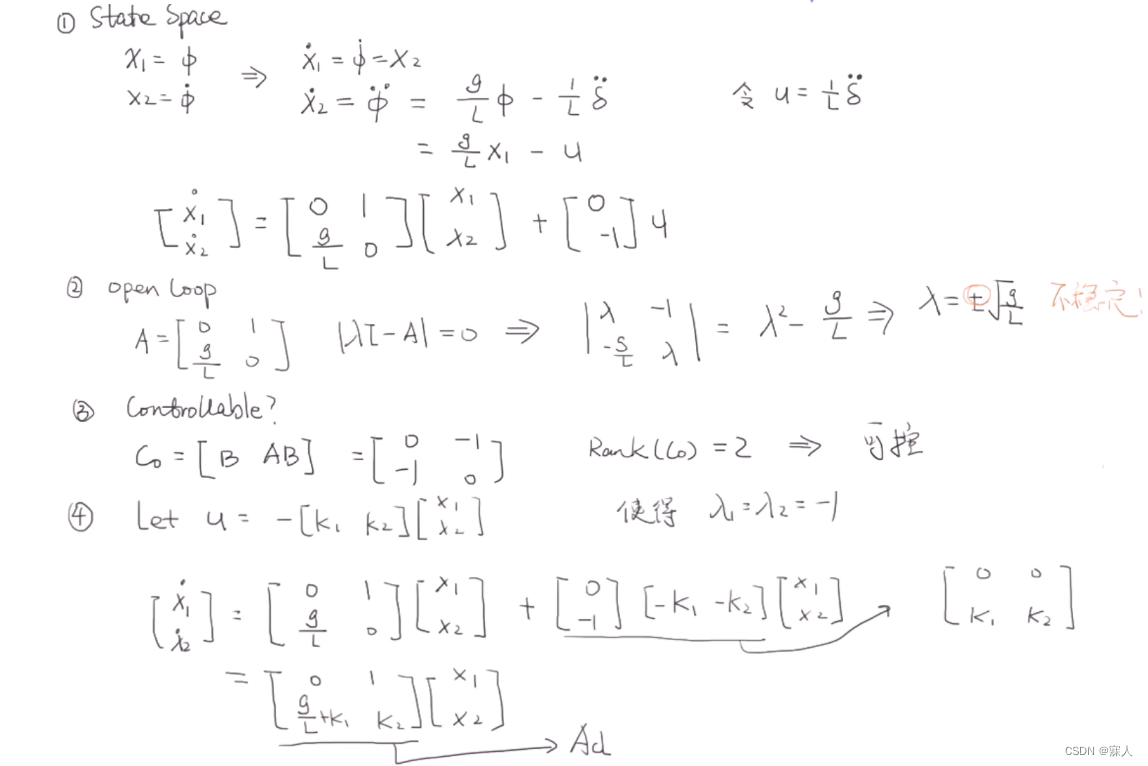 ① State Space
x₁ = ϕ ⇒ ẋ₁ = ϕ̇ = x₂
x₂ = ϕ̇ ẋ₂ = ϕ̈ = g/L ϕ - 1/L δ̈ 令 u = 1/L δ̈
= g/L x₁ - u
[ẋ₁; ẋ₂] = [0 1; g/L 0] [x₁; x₂] + [0; -1] u
② open loop
A = [0 1; g/L 0] |λI - A| = 0 ⇒ |λ -1; -g/L λ| = λ² - g/L ⇒ λ = ±√(g/L) 不稳定!
③ Controllable?
Co = [B AB] = [0 -1; -1 0] Rank(Co) = 2 ⇒ 可控
④ Let u = -[k₁ k₂] [x₁; x₂] 使得 λ₁ = λ₂ = -1
[ẋ₁; ẋ₂] = [0 1; g/L 0] [x₁; x₂] + [0; -1] [-k₁ -k₂] [x₁; x₂] → [0 0; k₁ k₂]
= [0 1; g/L+k₁ k₂] [x₁; x₂]
→ Acl
CSDN @寐人